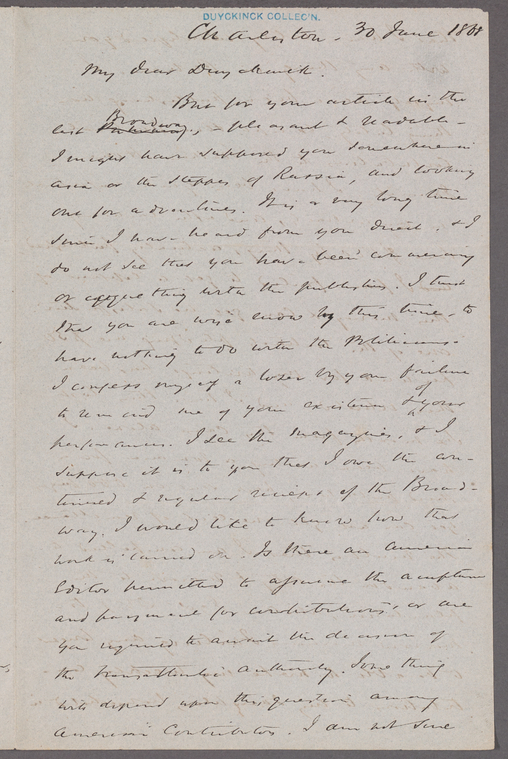 DUYCKINCK COLLEC'N.
Charleston. 30 June 1868
My dear Duyckinck.
But for your article in the
last Broadway, - pleasant & readable -
I might have supposed you somewhere in
Asia or the steppes of Russia, and looking
out for adventures. It is a very long time
since I have heard from you direct. & I
do not see that you have been conversing
or operating with the publishers. I trust
that you are wise enow by this time, to
have nothing to do with the Politicians.
I confess myself a loser by your failure
to remind me of your existence & of your
performances. I see the magazines, & I
suppose it is to you that I owe the con-
tinued & regular receipt of the Broad-
way. I would like to know how that
work is carried on. Is there an American
Editor permitted to assume the acceptance
and payment for contributions, or are
you required to await the decision of
the transatlantic authority. Some thing
will depend upon this question among
American Contributors. I am not sure